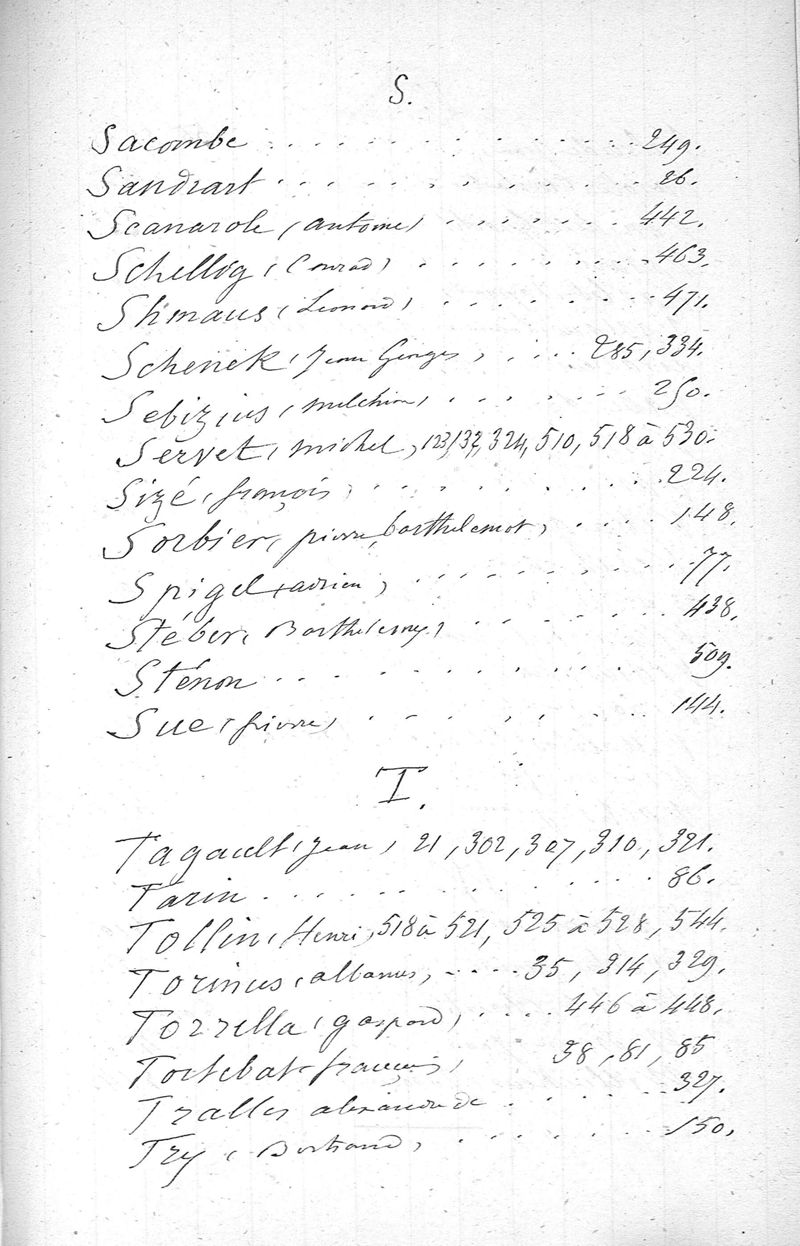 S.
Sacombe . . . . . . . . . . 249.
Sandrart . . . . . . . . . . 26.
Scanarole (antoine) . . . . . . 442.
Schellig (Conrad) . . . . . . . 463.
Shmaus (Léonard) . . . . . . . 471.
Schenck (Jean Georges) . . . . 285, 334.
Sebizius (melchior) . . . . . . . 250.
Servet (michel) 123, 132, 324, 510, 518 à 530.
Sizé (françois) . . . . . . . . . 224.
Sorbier (pierre barthelemot) . . . . 148.
Spigel (adrien) . . . . . . . . . 77.
Stéber (Barthelemy) . . . . . . 438.
Sténon . . . . . . . . . . 509.
Sue (pierre) . . . . . . . . 144.
T.
Tagault (jean) 21, 302, 307, 310, 321.
Tarin . . . . . . . . . . 86.
Tollin (Henri) 518 à 521, 525 à 528, 544.
Torinus (albanus) . . . . 35, 314, 329.
Torrella (gaspard) . . . . 446 à 448.
Tortebat françois) 38, 81, 85
Tralles alexandre de . . . . . . 327.
Try (Bertrand) . . . . . . . 150.